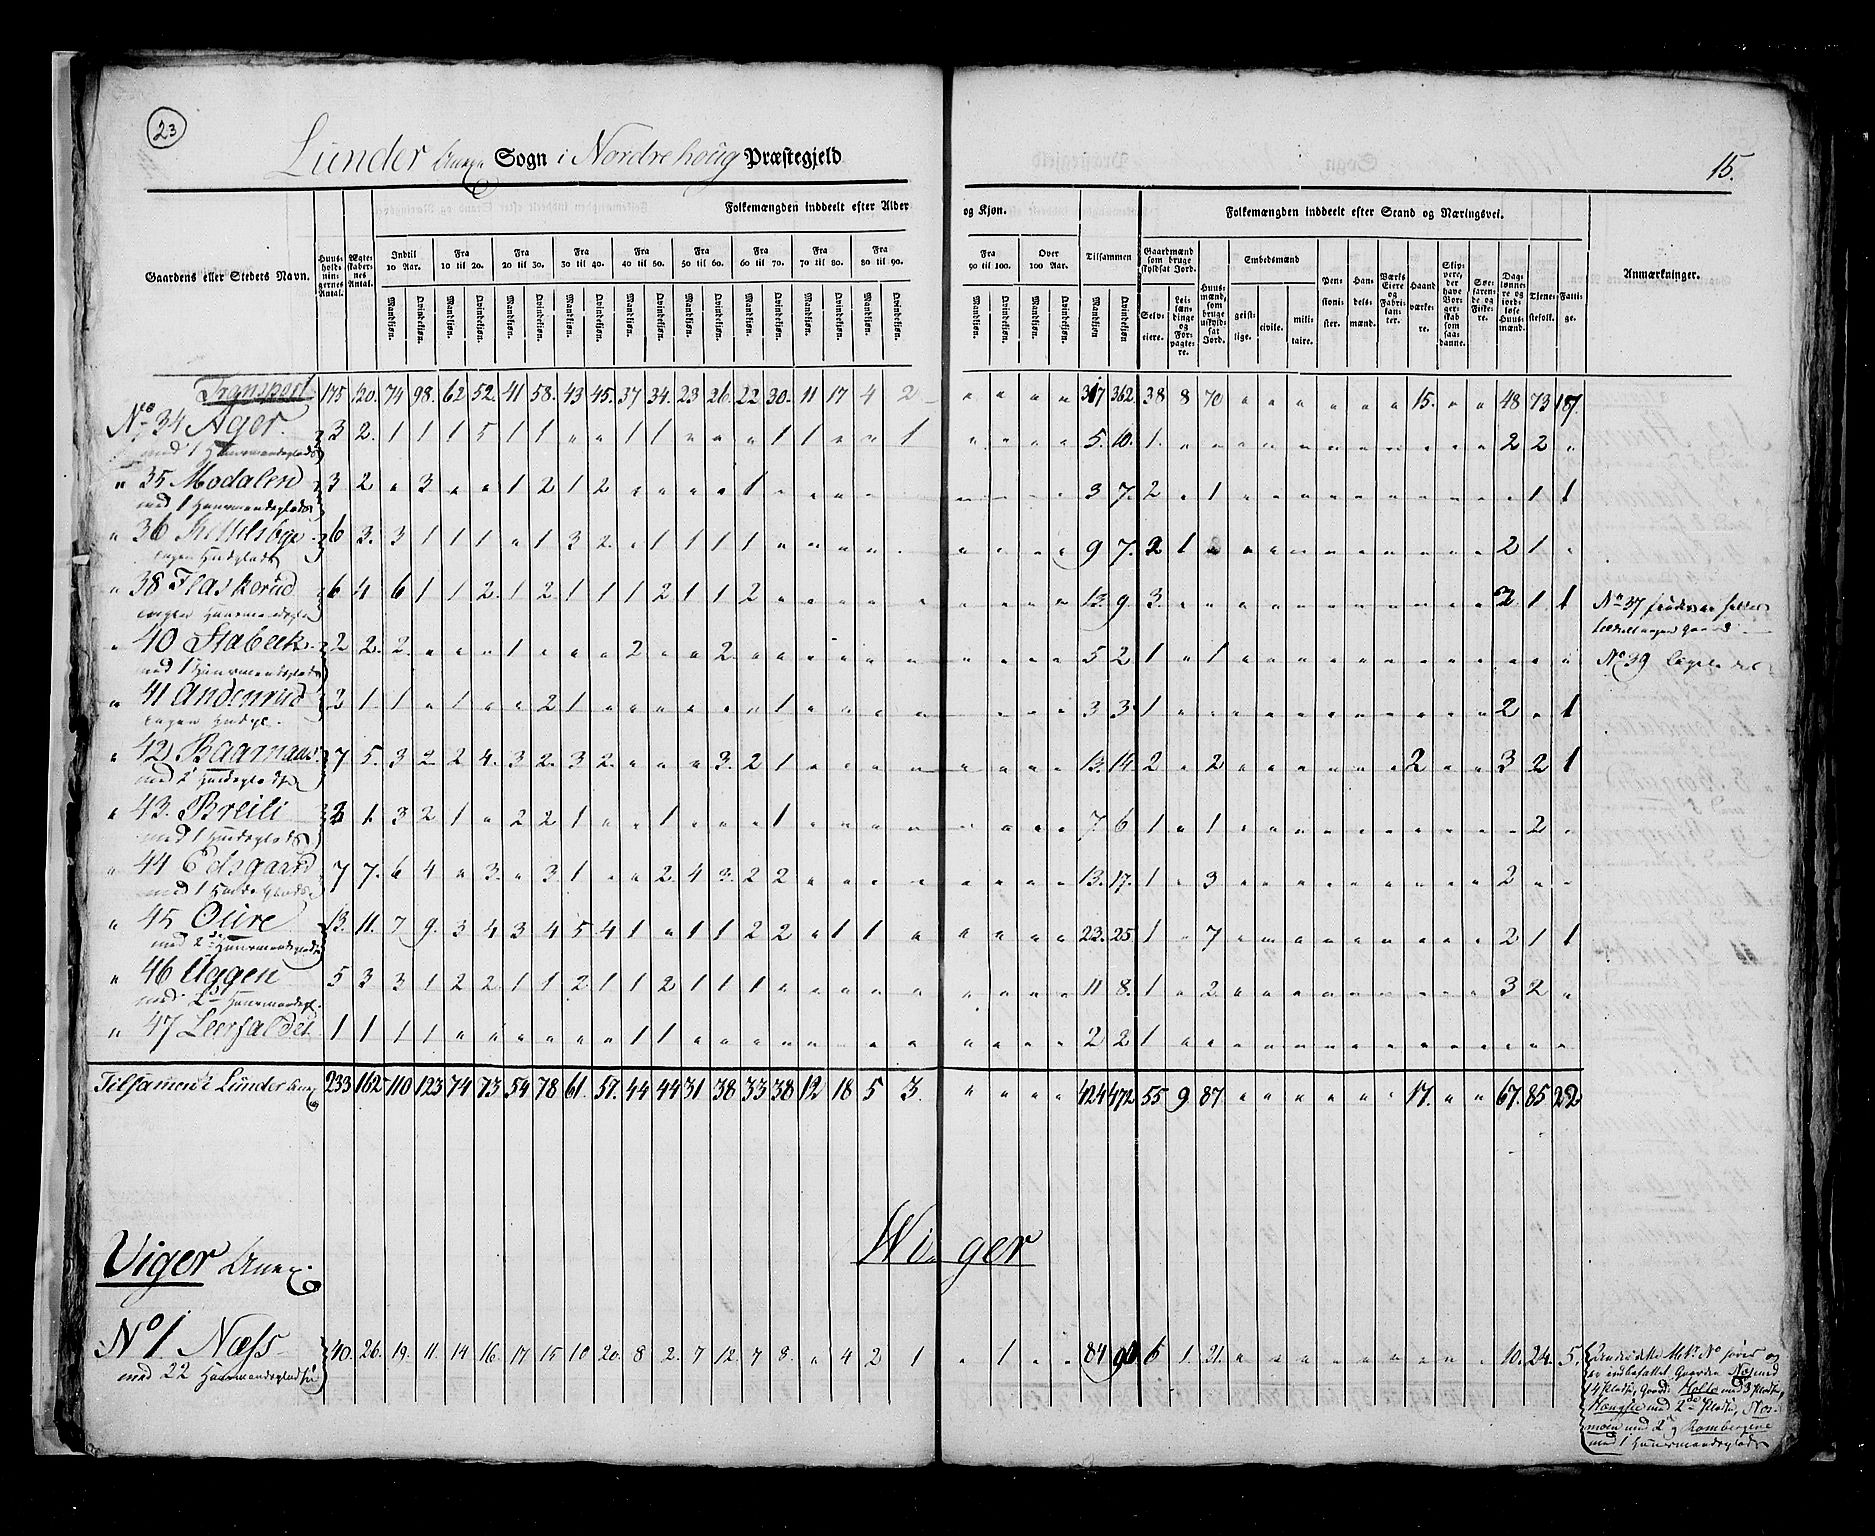 23
Lunder Annex Sogn i Nordrehoug Præstegjeld
15.
Gaardens eller Stedets Navn. Huusholdningernes Antal. Ægteskabernes Antal. Folkemængden inddeelt efter Alder og Kjøn. Folkemængden inddeelt efter Stand og Næringsvei. Anmærkninger.
Indtil 10 Aar. Fra 10 til 20. Fra 20 til 30. Fra 30 til 40. Fra 40 til 50. Fra 50 til 60. Fra 60 til 70. Fra 70 til 80. Fra 80 til 90. Fra 90 til 100. Over 100 Aar. Tilsammen
Mandkjøn. Qvindekjøn. Mandkjøn. Qvindekjøn. Mandkjøn. Qvindekjøn. Mandkjøn. Qvindekjøn. Mandkjøn. Qvindekjøn. Mandkjøn. Qvindekjøn. Mandkjøn. Qvindekjøn. Mandkjøn. Qvindekjøn. Mandkjøn. Qvindekjøn. Mandkjøn. Qvindekjøn. Mandkjøn. Qvindekjøn. Mandkjøn. Qvindekjøn.
Gaardmænd som bruge skyldsat Jord. Selveiere. Leilændinge og Forpagtere. Huusmænd, som bruge uskyldsat Jord. Embedsmænd geistlige. civile. militaire. Pensionister. Handelsmænd. Værks Eiere og Fabrikanter. Haandværkere. Skippere, der have Borgerskab som saadanne. Søefarende og Fiskere. Daglønnere og jordløse Huusmænd. Tjenestefolk. Fattige.
Transport 175 120. 74 98. 62 52. 41 58. 43 45. 37 34. 23 26. 22 30. 11 17 4 2 " " " " 317 362. 38 8 70 " " " " " " 15. " " 48 73 18
No 34 Ager. 3 2. 1 1 1 5 1 1 " " 1 1 " " 1 1 " " 1 " " " " 5. 10. 1. " " " " " " " " " " " 2 2 "
med 1 Huusmandsplads
" 35 Modalen 3 2 " 3 " " 1 2 1 2 " " " " 1 " " " " " " " " 3 7. 2 " 1 " " " " " " " " " " 1 1
med 1 Huusmandsplads
" 36 6 3. 3 1 1 1 " 1 3 2. " 1 1 1 1 " " " " " " " " 9 7. 2 1 " " " " " " " " " " 2 1 "
Ingen Huuspladse
" 38 Flaskerud 6 4 6 1 1 2. 1 2 1 1 1 2 1 1 2 " " " " " " " " 13. 9 3. " " " " " " " " " " " 2. 1 1 No 37
Ingen Huusmandspl.
" 40 Stabeck 2 2. 2. " " " 1 " " " 2 " " 2. " " " " " " " " " 5 2 1 " 1 " " " " " " " " " " " " No 39
med 1 Huusmandsplads
" 41 Andenrud 3 1 1 " 1 " " 2 1 " " " " " 1 " " " " " " " 3 3. 1 " " " " " " " " " " " 2 " 1
Ingen Huuspl.
" 42 7 5. 3 2 2 4. 3 2. 3 2. " " " 3. 2 1 " " " " " " " 13. 14 2 " 2 " " " " " " 2 " " 3 2 1
med 2 Huuspladse
" 43. Breili 1. 3 2 1 " 2 2 1 " " 1 " " " 1 " " " " " " " 7 6 1 " 1 " " " " " " " " " " 2 "
med 1 Huusplads
" 44 Edsgaard 7 7. 6 4 " 3. " 3. 1 " " 2 4 3. 2 2 " " " " " " " 13. 17. 1 " 3 " " " " " " " " " 2 " "
med 1
" 45 Oure 13. 11. 7 9. 3 4 3 4 5 4 1 " 1 1 2 2 " 1 1 " " " " 23. 25 1 " 7 " " " " " " " " " 2 1 1
med 2de Huusmandspladse
" 46 Aggen 5 3 3 1 2 2 1 1 2 1 1 2 1 1 1 " " " " " " " " 11 8. 1 " 2 " " " " " " " " " 3 2 "
med Huusmandspl.
" 47 1 1 1 1 " " " " " " 1 1 " " " " " " " " " " " 2 2 1 " " " " " " " " " " " " " "
Tilsamen i Lunder Annex 233 162 110 123 74 73. 54 78 61. 57. 44 44 31 38 33 38 12 18 5 3. " " " " 424 472 55 9 87 " " " " " " 17. " " 67. 85 22
Viger Annex.
Wiger
No 1. Næss 40. 26. 19. 11. 14 16. 17 15 10 20. 8 2. 7 12. 7 8. " 4 2 1 " 1 " " 84 6 1. 21. " " " " " " " " " 10. 24. 5.
med 22 Huusmandspladse
indbefattet Gaarden Næs med
14 Pladse, Gaard. Holte med 3 Pladse,
med 2de Pladse,
med 1 Huusmandsplads